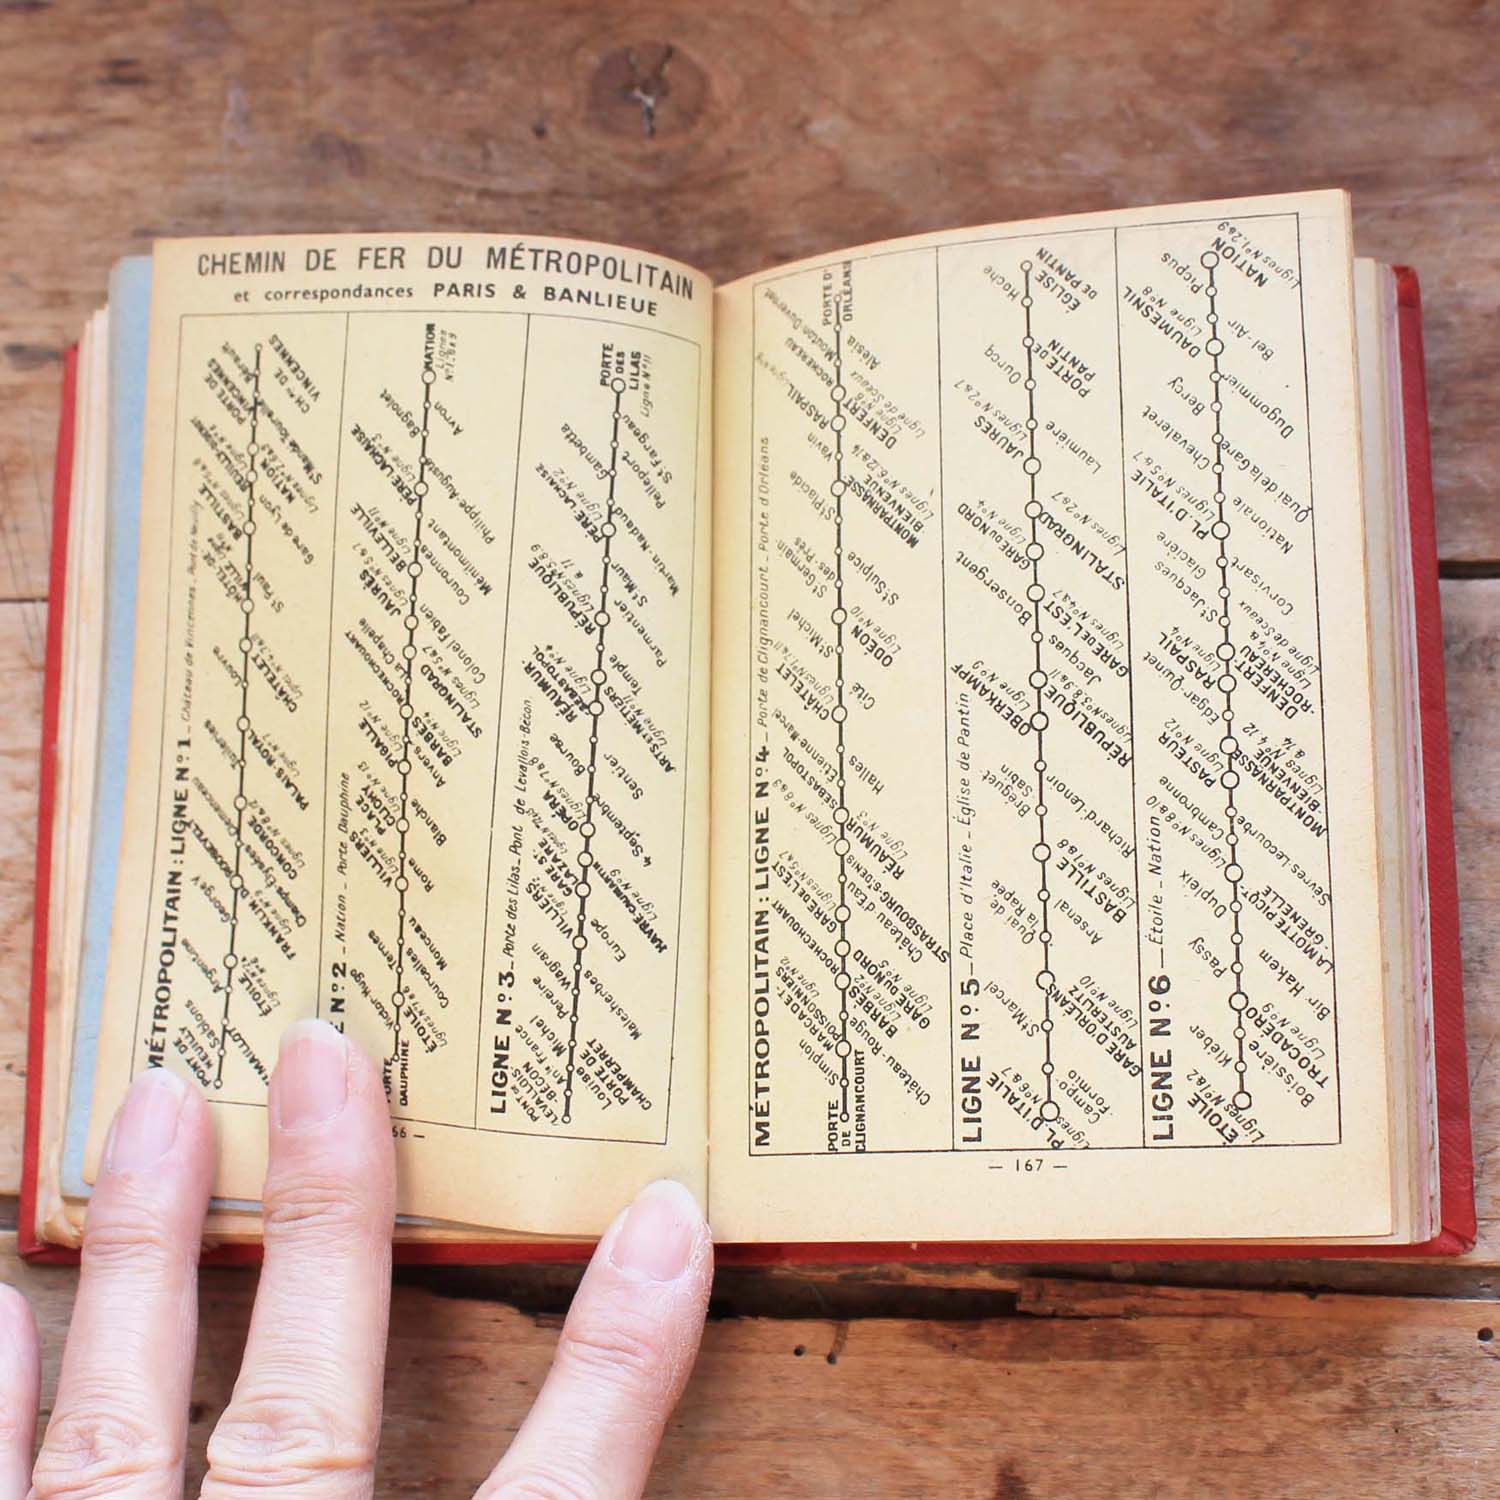 CHEMIN DE FER DU MÉTROPOLITAIN
et correspondances PARIS & BANLIEUE
MÉTROPOLITAIN: LIGNE Nº1 _ Château de Vincennes _ Pont de Neuilly
PONT DE NEUILLY
Sablons
MAILLOT
Argentine
ÉTOILE
George V
FRANKLIN D. ROOSEVELT
Champs Elysées
Clemenceau
CONCORDE
Tuileries
PALAIS-ROYAL
Louvre
CHÂTELET
HÔTEL-DE-VILLE
St Paul
BASTILLE
Gare de Lyon
REUILLY-
NATION
PORTE DE VINCENNES
St Mandé Tourelle
Bérault
CHau DE VINCENNES
E Nº2 _ Nation _ Porte Dauphine
DAUPHINE
Victor Hugo
ÉTOILE
Ternes
Courcelles
Monceau
VILLIERS
Ligne Nº3
Rome
PLACE CLICHY
Ligne Nº13
Blanche
PIGALLE
Ligne Nº12
Anvers
BARBÈS
Ligne Nº4
ROCHECHOUART
La Chapelle
STALINGRAD
Lignes Nº5&7
JAURÈS
Lignes Nº5&7
Colonel Fabien
BELLEVILLE
Ligne Nº11
Couronnes
Ménilmontant
PÈRE LACHAISE
Ligne Nº3
Philippe-Auguste
Bagnolet
Avron
NATION
LIGNE Nº3 _ Porte des Lilas _ Pont de Levallois-Bécon
PONT DE LEVALLOIS-BÉCON
Anle France
Louise Michel
PORTE DE CHAMPERRET
Pereire
Wagram
Malesherbes
VILLIERS
Ligne Nº2
Europe
GARE ST LAZARE
HAVRE CAUMARTIN
Ligne Nº9
OPÉRA
Lignes Nº7&8
4 Septembre
Bourse
Sentier
RÉAUMUR-SÉBASTOPOL
Ligne Nº4
ARTS ET MÉTIERS
Ligne Nº11
Temple
RÉPUBLIQUE
Lignes Nº5 8.9 & 11
Parmentier
St Maur
PÈRE LACHAISE
Ligne Nº2
Martin-Nadaud
Gambetta
Pelleport
St Fargeau
PORTE DES LILAS
Ligne Nº11
66 —
MÉTROPOLITAIN: LIGNE Nº4 _ Porte de Clignancourt _ Porte d'Orléans
PORTE DE CLIGNANCOURT
Simplon
MARCADET-POISSONNIERS
Ligne Nº12
Château-Rouge
BARBÈS
Ligne Nº2
ROCHECHOUART
GARE DU NORD
Ligne Nº5
GARE DE L'EST
Lignes Nº5&7
Château d'Eau
STRASBOURG-ST-DENIS
Lignes Nº8&9
RÉAUMUR
Ligne Nº3
SÉBASTOPOL
Étienne-Marcel
Halles
CHÂTELET
Lignes Nº1,7&11
Cité
St Michel
ODÉON
Ligne Nº10
St Germain-des Prés
St Sulpice
St Placide
MONTPARNASSE
BIENVENUE
Lignes Nº6,12&14
Vavin
RASPAIL
Ligne Nº6
DENFERT
ROCHEREAU
Ligne de Sceaux
Mouton Duvernet
Alésia
PORTE D'ORLÉANS
LIGNE Nº5 _ Place d'Italie _ Église de Pantin
PL. D'ITALIE
Lignes Nº6&7
Campo-Formio
St Marcel
GARE D'ORLÉANS
AUSTERLITZ
Ligne Nº10
Quai de la Rapée
Arsenal
BASTILLE
Lignes Nº1&8
Bréguet-Sabin
Richard-Lenoir
OBERKAMPF
Ligne Nº9
RÉPUBLIQUE
Lignes Nº3.8.9&11
Jacques Bonsergent
GARE DE L'EST
Lignes Nº4&7
GARE DU NORD
Ligne Nº4
STALINGRAD
Lignes Nº2&7
JAURÈS
Lignes Nº2&7
Laumière
Ourcq
PORTE DE PANTIN
Hoche
ÉGLISE DE PANTIN
LIGNE Nº6 _ Étoile _ Nation
ÉTOILE
Lignes Nº1&2
Kléber
Boissière
TROCADÉRO
Ligne Nº9
Passy
Bir Hakem
Dupleix
LA MOTTE PICQT-GRENELLE
Lignes Nº8&10
Cambronne
Sèvres Lecourbe
PASTEUR
Ligne Nº12
MONTPARNASSE
-BIENVENUE
Lignes Nº 4, 12 & 14
Edgar Quinet
RASPAIL
Ligne Nº4
DENFERT-ROCHEREAU
Ligne Nº4&
Ligne de Sceaux
St Jacques
Glacière
Corvisart
PL. D'ITALIE
Lignes Nº5&7
Nationale
Chevaleret
Quai de la Gare
Bercy
Dugommier
DAUMESNIL
Ligne Nº8
Bel-Air
Picpus
NATION
Lignes Nº1,2&9
— 167 —